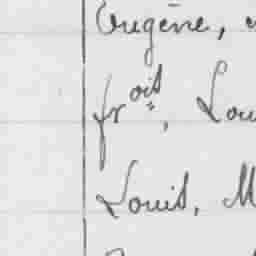 Eugène,
frois, Lou
Louis, M